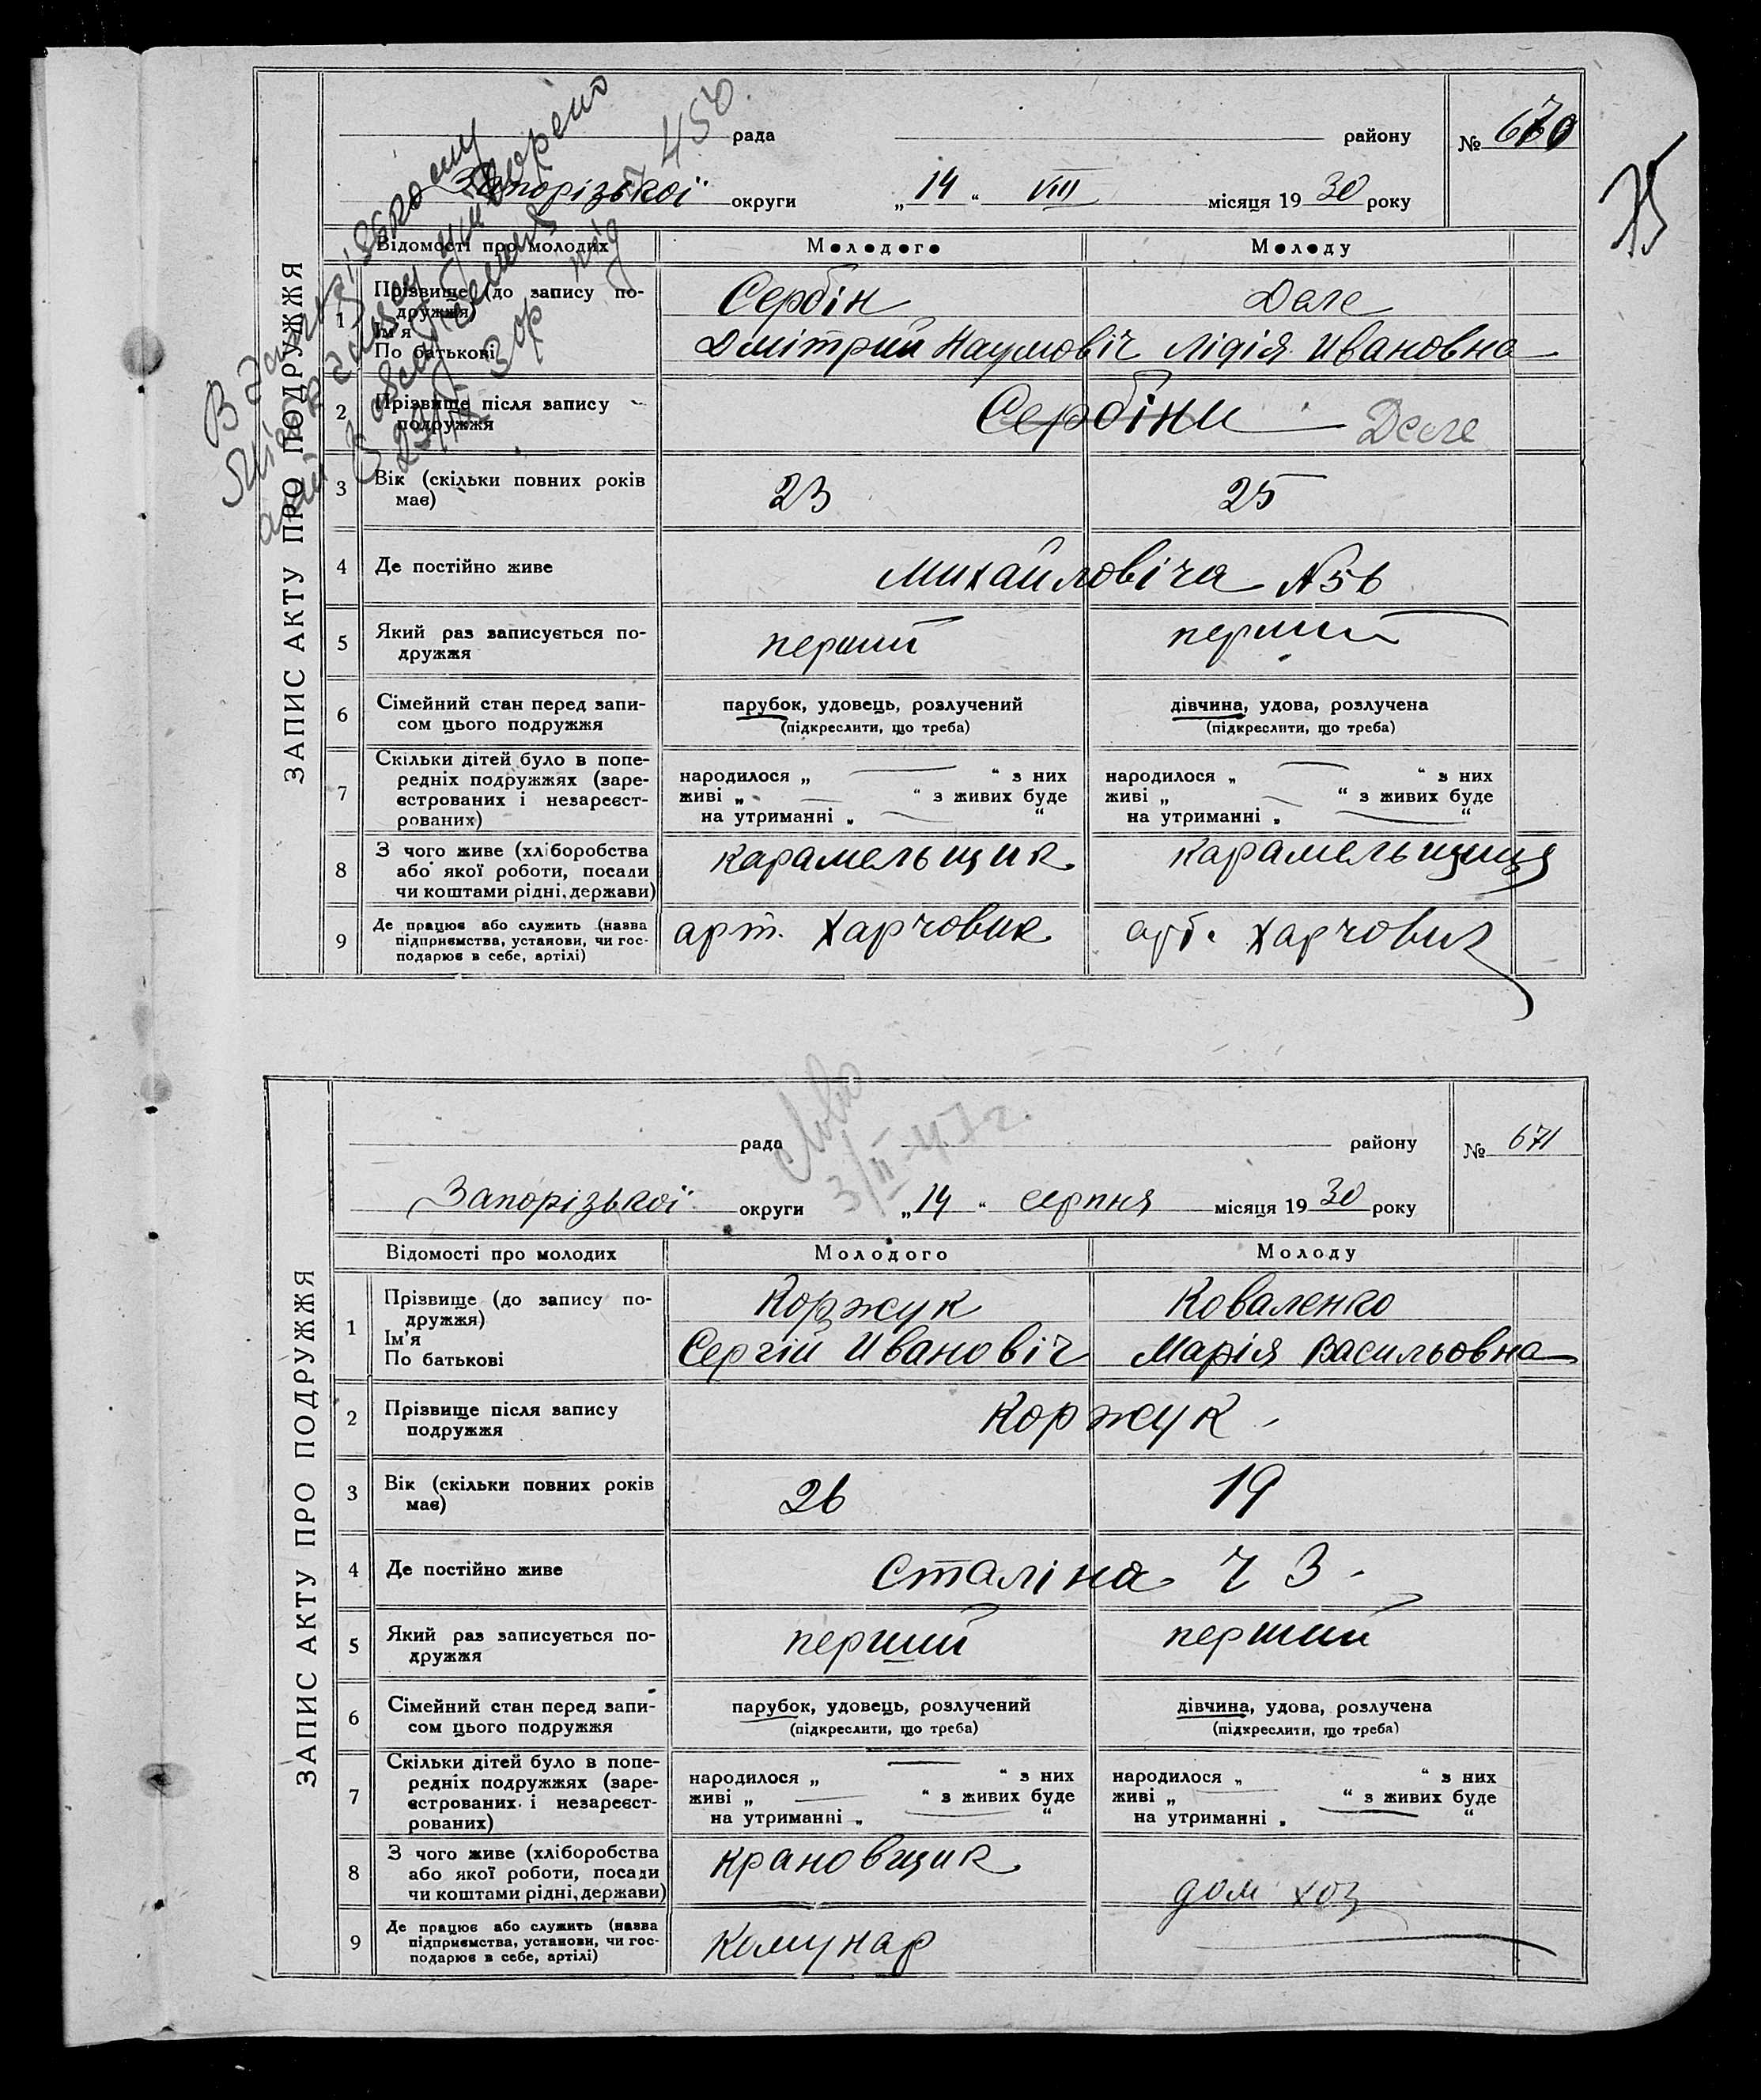 75
ЗАПИС АКТУ ПРО ПОДРУЖЖЯ
рада району № 670
Запорізької округи „14“ VIII місяця 1930 року
Відомості про молодих Молодого Молоду
1 Прізвище (до запису по-
дружжя) Сербін Деле
Ім'я
По батькові Дмітрий Наумовіч Лідія Ивановна
2 Прізвище після запису
подружжя Сербіни Деле
3 Вік (скільки повних років
має) 23 25
4 Де постійно живе Михайловіча №56
5 Який раз записується по-
дружжя перший перший
6 Сімейний стан перед запи-
сом цього подружжя
парубок, удовець, розлучений дівчина, удова, розлучена
(підкреслити, що треба) (підкреслити, що треба)
7 Скільки дітей було в попе-
редніх подружжях (заре-
єстрованих і незареєст-
рованих)
народилося „ “ з них народилося „ “ з них
живі „ “ з живих буде живі „ “ з живих буде
на утриманні „ “ на утриманні „ “
8 З чого живе (хліборобства
або якої роботи, посади
чи коштами рідні, держави)
карамельщик карамельщиця
9 Де працює або служить (назва
підприємства, установи, чи гос-
подарює в себе, артілі)
арт. Харчовик арт. Харчовик
ЗАПИС АКТУ ПРО ПОДРУЖЖЯ
3/II-47г.
рада району № 671
Запорізької округи „14“ серпня місяця 1930 року
Відомості про молодих Молодого Молоду
1 Прізвище (до запису по-
дружжя) Коржук Коваленко
Ім'я
По батькові Сергій Ивановіч Марія Васильовна
2 Прізвище після запису
подружжя Коржук
3 Вік (скільки повних років
має) 26 19
4 Де постійно живе Сталіна Ч 3
5 Який раз записується по-
дружжя перший перший
6 Сімейний стан перед запи-
сом цього подружжя
парубок, удовець, розлучений дівчина, удова, розлучена
(підкреслити, що треба) (підкреслити, що треба)
7 Скільки дітей було в попе-
редніх подружжях (заре-
єстрованих і незареєст-
рованих)
народилося „ “ з них народилося „ “ з них
живі „ “ з живих буде живі „ “ з живих буде
на утриманні „ “ на утриманні „ “
8 З чого живе (хліборобства
або якої роботи, посади
чи коштами рідні, держави)
крановщик дом хоз
9 Де працює або служить (назва
підприємства, установи, чи гос-
подарює в себе, артілі)
Комунар